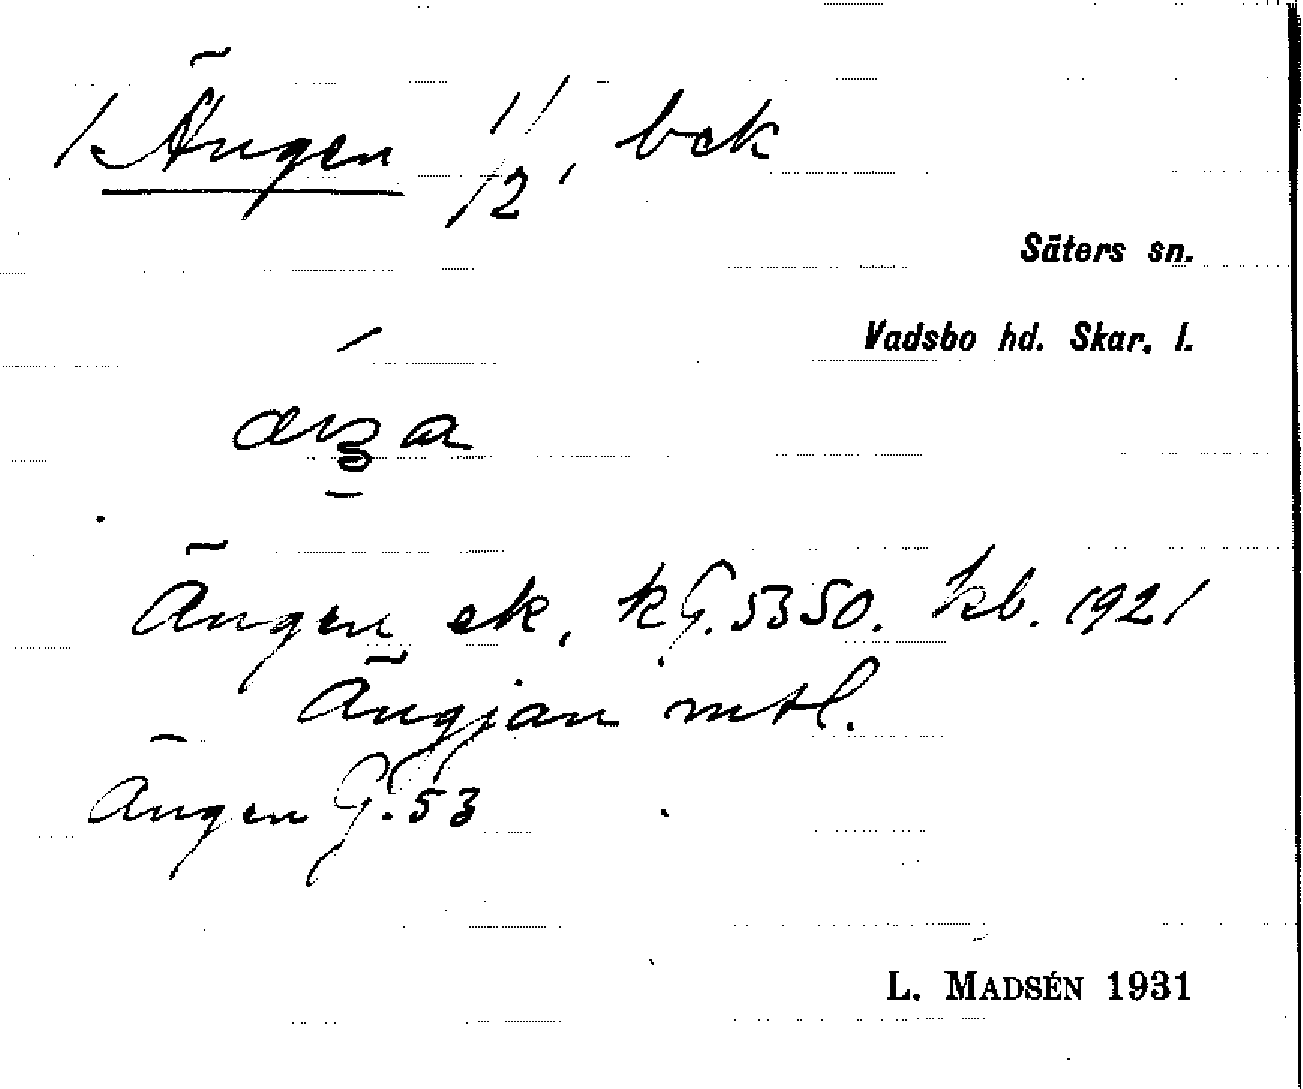 1. Ängen 1/ /2, bck
Säters sn.
Vadsbo hd. Skar. l.
Ängen ek. kG. 5350. kb. 1921
Ängjan mtl.
Ängen G. 53
L. MADSÉN 1931